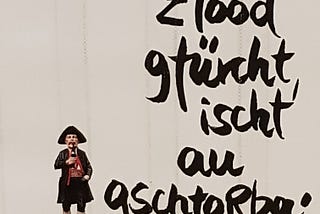 z'Tood
gfürcht,
ischt
au
gschtorba: